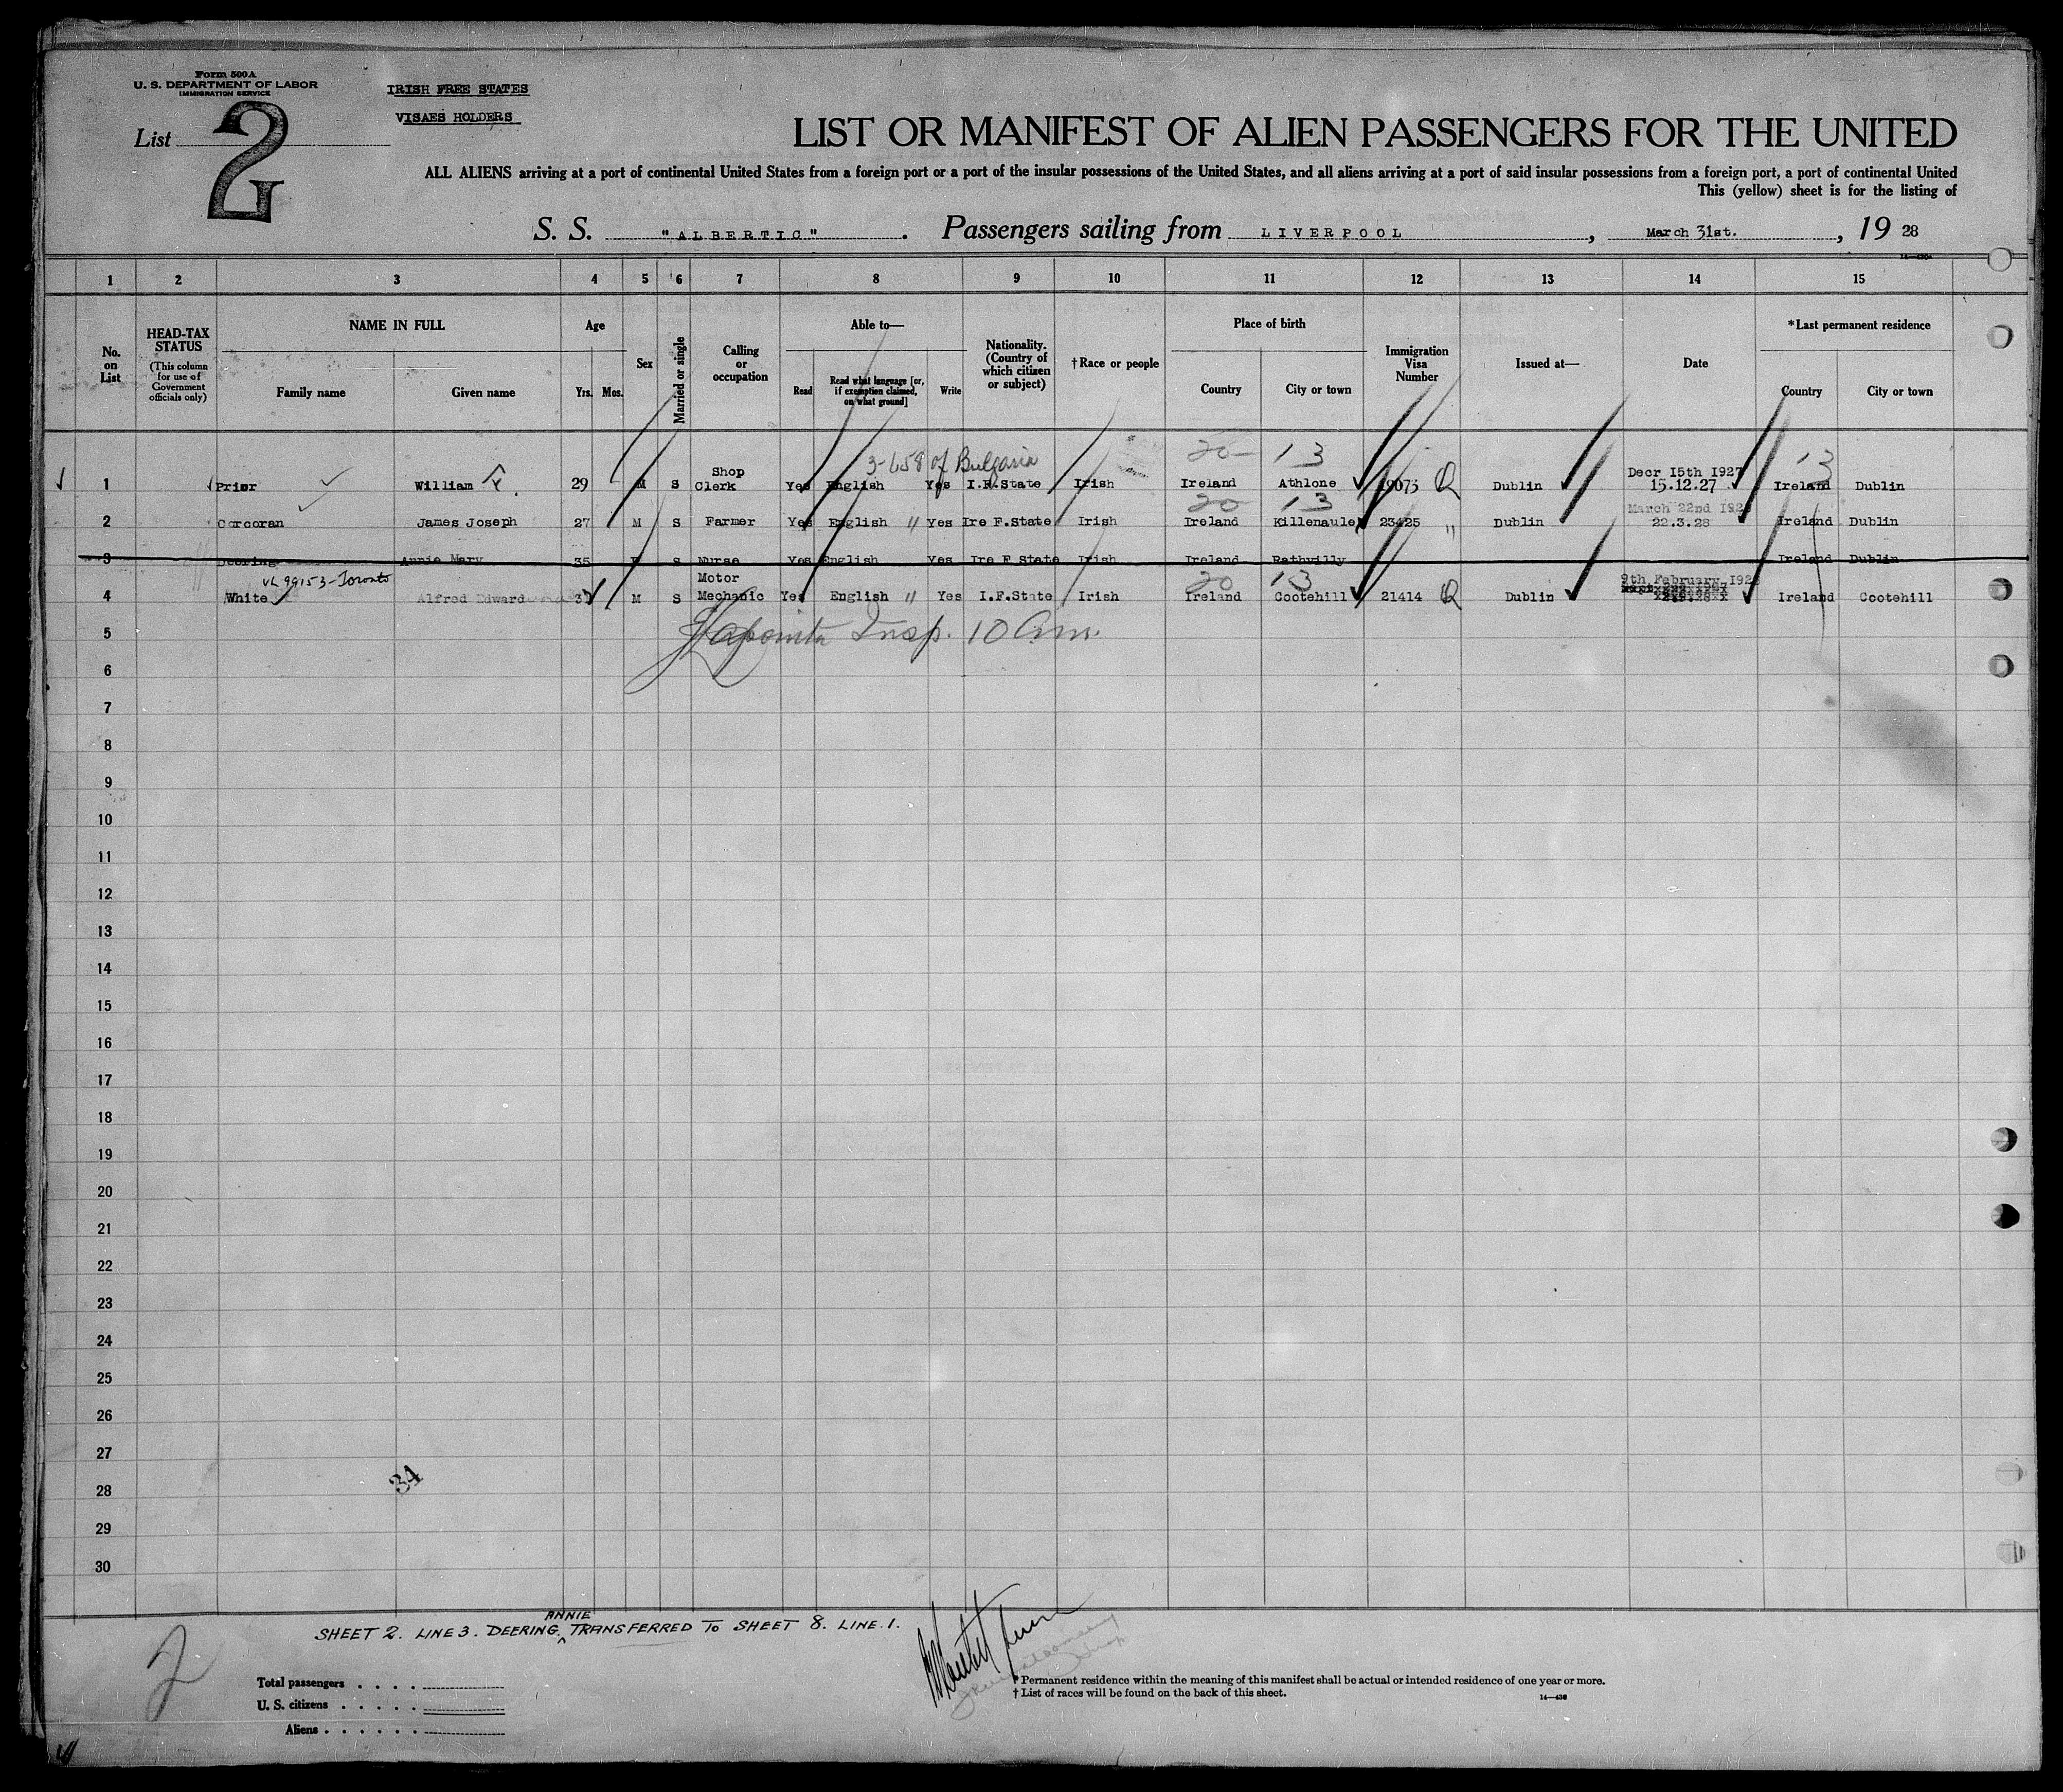 Form 500A
U. S. DEPARTMENT OF LABOR
IMMIGRATION SERVICE
List 2
IRISH FREE STATES
VISAES HOLDERS
LIST OR MANIFEST OF ALIEN PASSENGERS FOR THE UNITED
ALL ALIENS arriving at a port of continental United States from a foreign port or a port of the insular possessions of the United States, and all aliens arriving at a port of said insular possessions from a foreign port, a port of continental United
This (yellow) sheet is for the listing of
S. S. "ALBERTIC". Passengers sailing from LIVERPOOL, March 31st., 19 28
14—430
1 2 3 4 5 6 7 8 9 10 11 12 13 14 15
No. on List
HEAD-TAX STATUS
(This column for use of Government officials only)
NAME IN FULL
Family name Given name
Age
Yrs. Mos.
Sex
Married or single
Calling or occupation
Able to—
Read Read what language [or, if exemption claimed, on what ground] Write
Nationality. (Country of which citizen or subject)
†Race or people
Place of birth
Country City or town
Immigration Visa Number
Issued at—
Date
*Last permanent residence
Country City or town
3-658 of Bulgaria
20 13 13
1 Prior William F. 29 M S Shop Clerk Yes English Yes I.F.State Irish Ireland Athlone 19073 Q Dublin Decr 15th 1927 15.12.27 Ireland Dublin
20 13
2 Corcoran James Joseph 27 M S Farmer Yes English " Yes Ire F.State Irish Ireland Killenaule 23425 " Dublin March 22nd 1928 22.3.28 Ireland Dublin
3 Deering Annie Mary 35 F S Nurse Yes English Yes Ire F State Irish Ireland Rathvilly Ireland Dublin
VL 99153-Toronto
20 13
4 White Alfred Edward 37 M S Motor Mechanic Yes English " Yes I.F.State Irish Ireland Cootehill 21414 Q Dublin 9th February 1928 Ireland Cootehill
5 Insp. 10 am.
6
7
8
9
10
11
12
13
14
15
16
17
18
19
20
21
22
23
24
25
26
27
28
29
30
34
SHEET 2. LINE 3. DEERING, ANNIE TRANSFERRED TO SHEET 8. LINE 1.
2
Total passengers
U. S. citizens
Aliens
* Permanent residence within the meaning of this manifest shall be actual or intended residence of one year or more.
† List of races will be found on the back of this sheet.
14—430